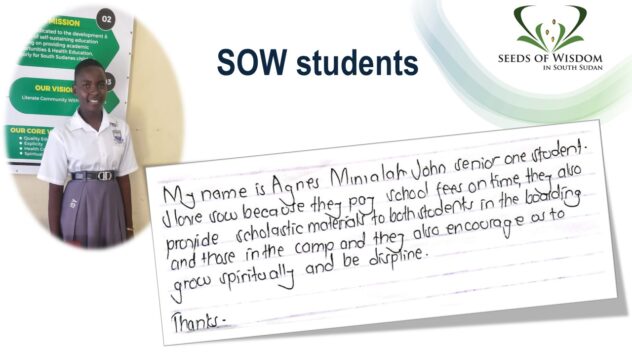 MISSION
02
cated to the development &
of self-sustaining education
ng on providing academic
ortunities & Health Education,
arly for South Sudanes
OUR VISION
03
Literate Community With
OUR CORE
Quality Ed
Explicity
Health
Spiritua
SOW students
SEEDS OF WISDOM
IN SOUTH SUDAN
My name is Agnes Minialah John senior one student.
I love sow because they pay school fees on time, they also
provide scholastic materials to both students in the boarding
and those in the camp and they also encourage as to
grow spiritually and be displine.
Thanks.